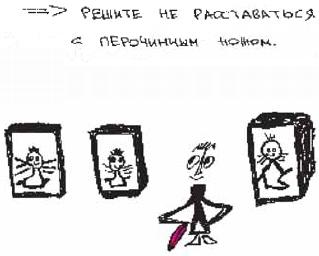 => РЕШИТЕ НЕ РАССТАВАТЬСЯ
С ПЕРОЧИННЫМ НОЖОМ.